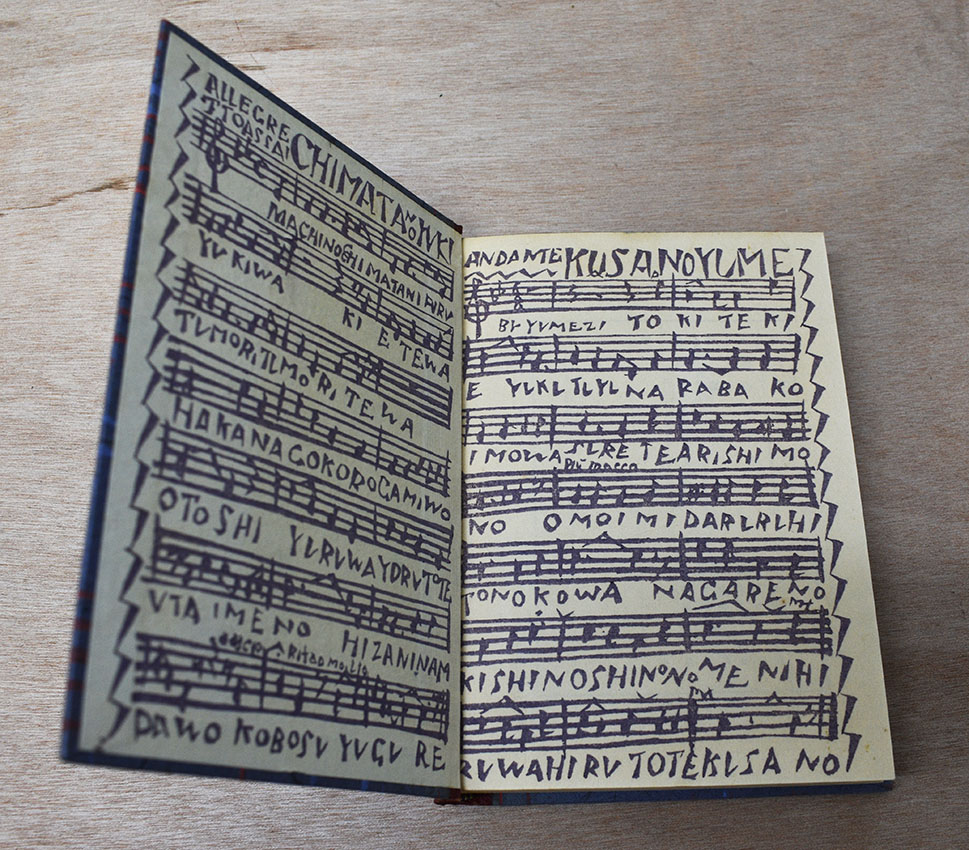 ALLEGRE
TTOASSAI
CHIMATA NO YUKI
MACHINOCHIMATANI FURU
YUKIWA KIETEWA
TUMORITUMORITEWA
HAKANAGOKOROGAMIWO
OTOSHI YURUWAYORUTOTE
UTAIMENO HIZANINAM
DAWO KOBOSU YUGURE
ANDANTE KUSA NO YUME
BY YUMEZI TOKITEKI
E YUKUTUYUNARABA KO
IMOWASURETEARISHIMO
Più mosso
NO OMOIMIDARURUHI
TONOKOWA NAGARENO
mf
KISHINOSHINONOMENIHI
RUWAHIRUTOTEKUSANO